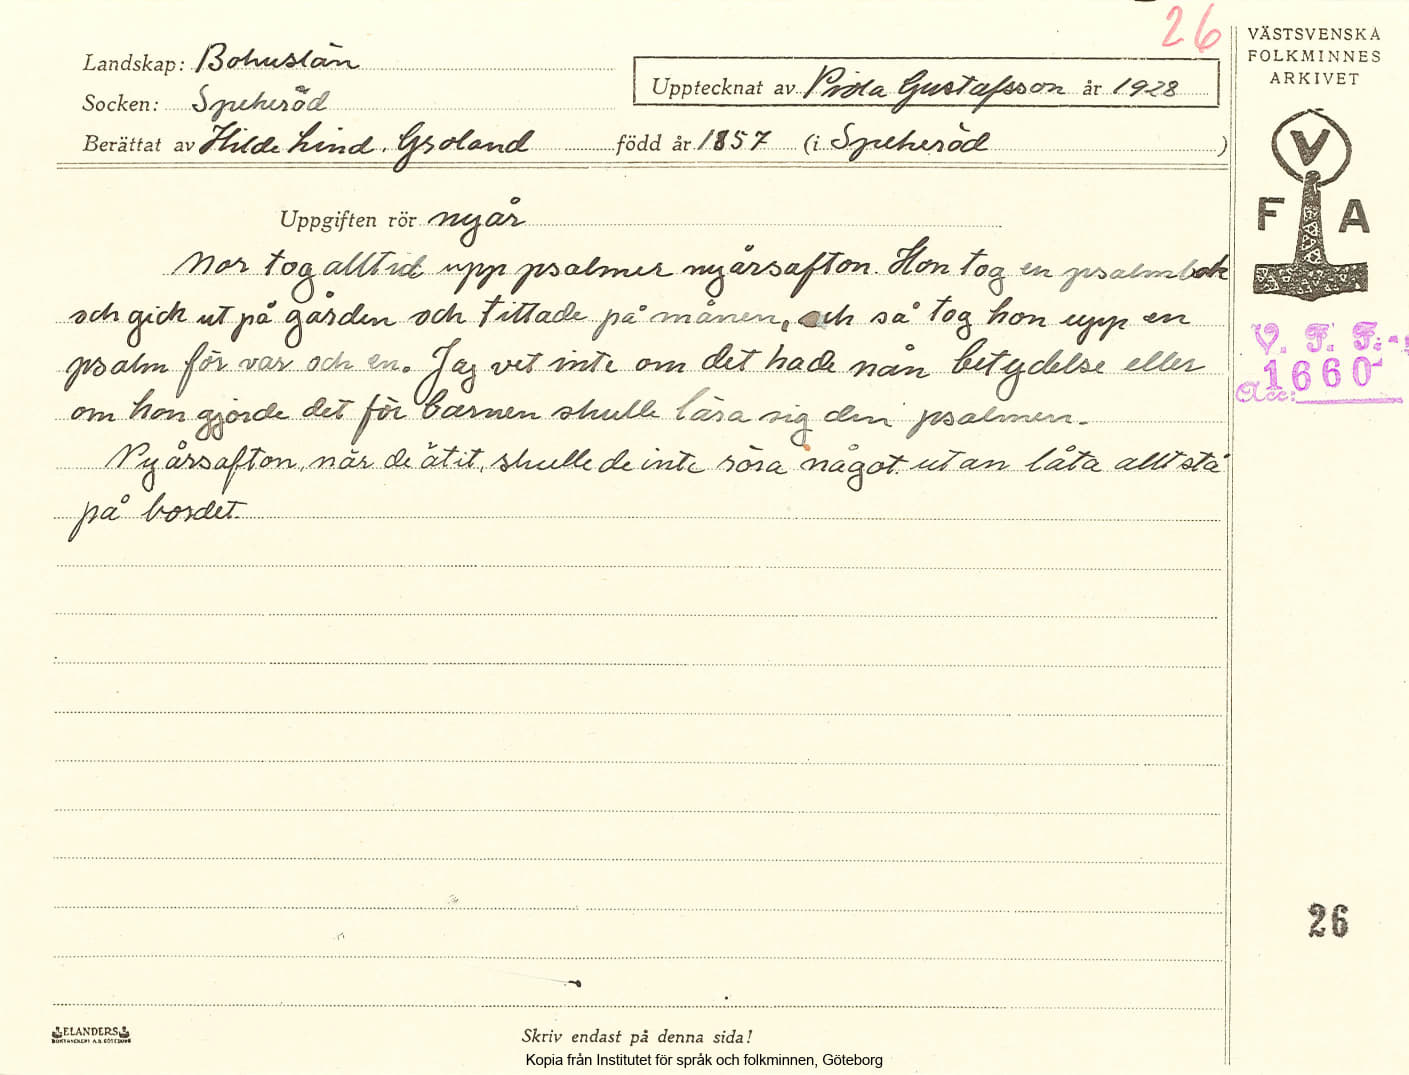 26
VÄSTSVENSKA
FOLKMINNES
ARKIVET
Landskap: Bohuslän
Upptecknat av Frida Gustafsson år 1928
Socken: Spekeröd
Berättat av Hilde Lind. Groland född år 1857 (i Spekeröd )
V
F A
Uppgiften rör nyår
Mor tog alltid upp psalmer nyårsafton. Hon tog en psalmbok
och gick ut på gården och tittade på månen, och så tog hon upp en
psalm för var och en. Jag vet inte om det hade nån betydelse eller
om hon gjorde det för barnen skulle lära sig den psalmen.
Nyårsafton, när de ätit, skulle de inte röra något utan låta allt stå
på bordet.
V. F. F:s
Acc: 1660
26
ELANDERS
BOKTRYCKERI A.B. GÖTEBORG
Skriv endast på denna sida!
Kopia från Institutet för språk och folkminnen, Göteborg